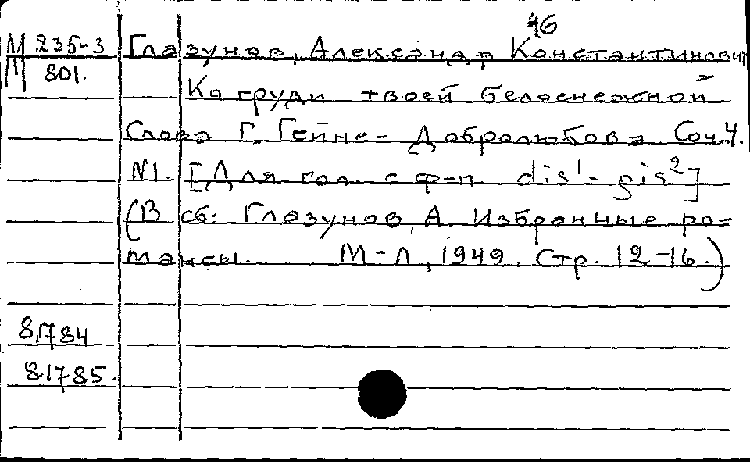 46
М 235-3 Глазунов, Александр Константинович
М 801.
Ко груди твоей белоснежной
Слова Г. Гейне - Добролюбова Соч 4.
N1. [Для гол. с ф-п. dis¹ - gis²]
(В сб: Глазунов, А. Избранные ро=
мансы. М-Л, 1949. Стр. 12-16.)
81784
81785.